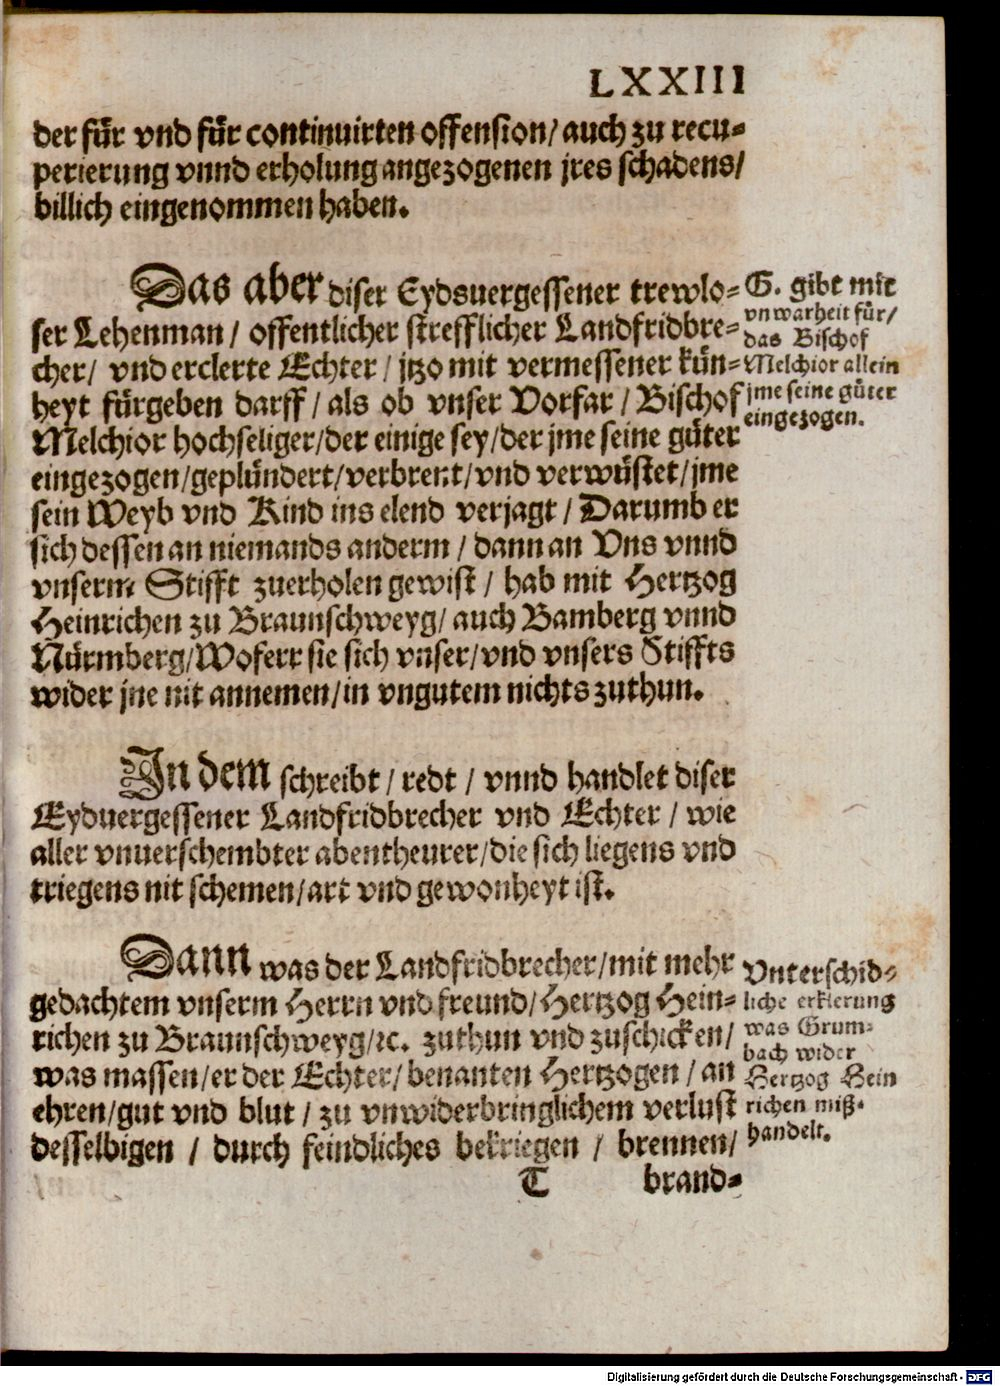 LXXIII
der für vnd für continuirten offension/ auch zu recu-
perierung vnnd erholung angezogenen jres schadens/
billich eingenommen haben.
Das aber diser Eydsuergessener trewlo-
ser Lehenman / offentlicher strefflicher Landfridbre-
cher/ vnd erclerte Echter / jtzo mit vermessener kün-
heyt fürgeben darff / als ob vnser Vorfar / Bischof
Melchior hochseliger/der einige sey/der jme seine güter
eingezogen/geplündert/verbrent/vnd verwüstet/jme
sein Weyb vnd Kind ins elend verjagt / Darumb er
sich dessen an niemands anderm / dann an Vns vnnd
vnserm Stifft zuerholen gewist / hab mit Hertzog
Heinrichen zu Braunschweyg/ auch Bamberg vnnd
Nürmberg/Woferr sie sich vnser/vnd vnsers Stiffts
wider jne nit annemen/in vngutem nichts zuthun.
G. gibt mit
vnwarheit für/
das Bischof
Melchior allein
jme seine güter
eingezogen.
In dem schreibt / redt / vnnd handlet diser
Eyduergessener Landfridbrecher vnd Echter / wie
aller vnuerschembter abentheurer/die sich liegens vnd
triegens nit schemen/art vnd gewonheyt ist.
Dann was der Landfridbrecher/mit mehr
gedachtem vnserm Herrn vnd freund/Hertzog Hein-
richen zu Braunschweyg/ꝛc. zuthun vnd zuschicken/
was massen/er der Echter/ benanten Hertzogen / an
ehren/gut vnd blut / zu vnwiderbringlichem verlust
desselbigen / durch feindliches bekriegen / brennen/
Vnterschid-
liche erklerung
was Grum-
bach wider
Hertzog Hein
richen miß-
handelt.
T brand-
Digitalisierung gefördert durch die Deutsche Forschungsgemeinschaft - DFG